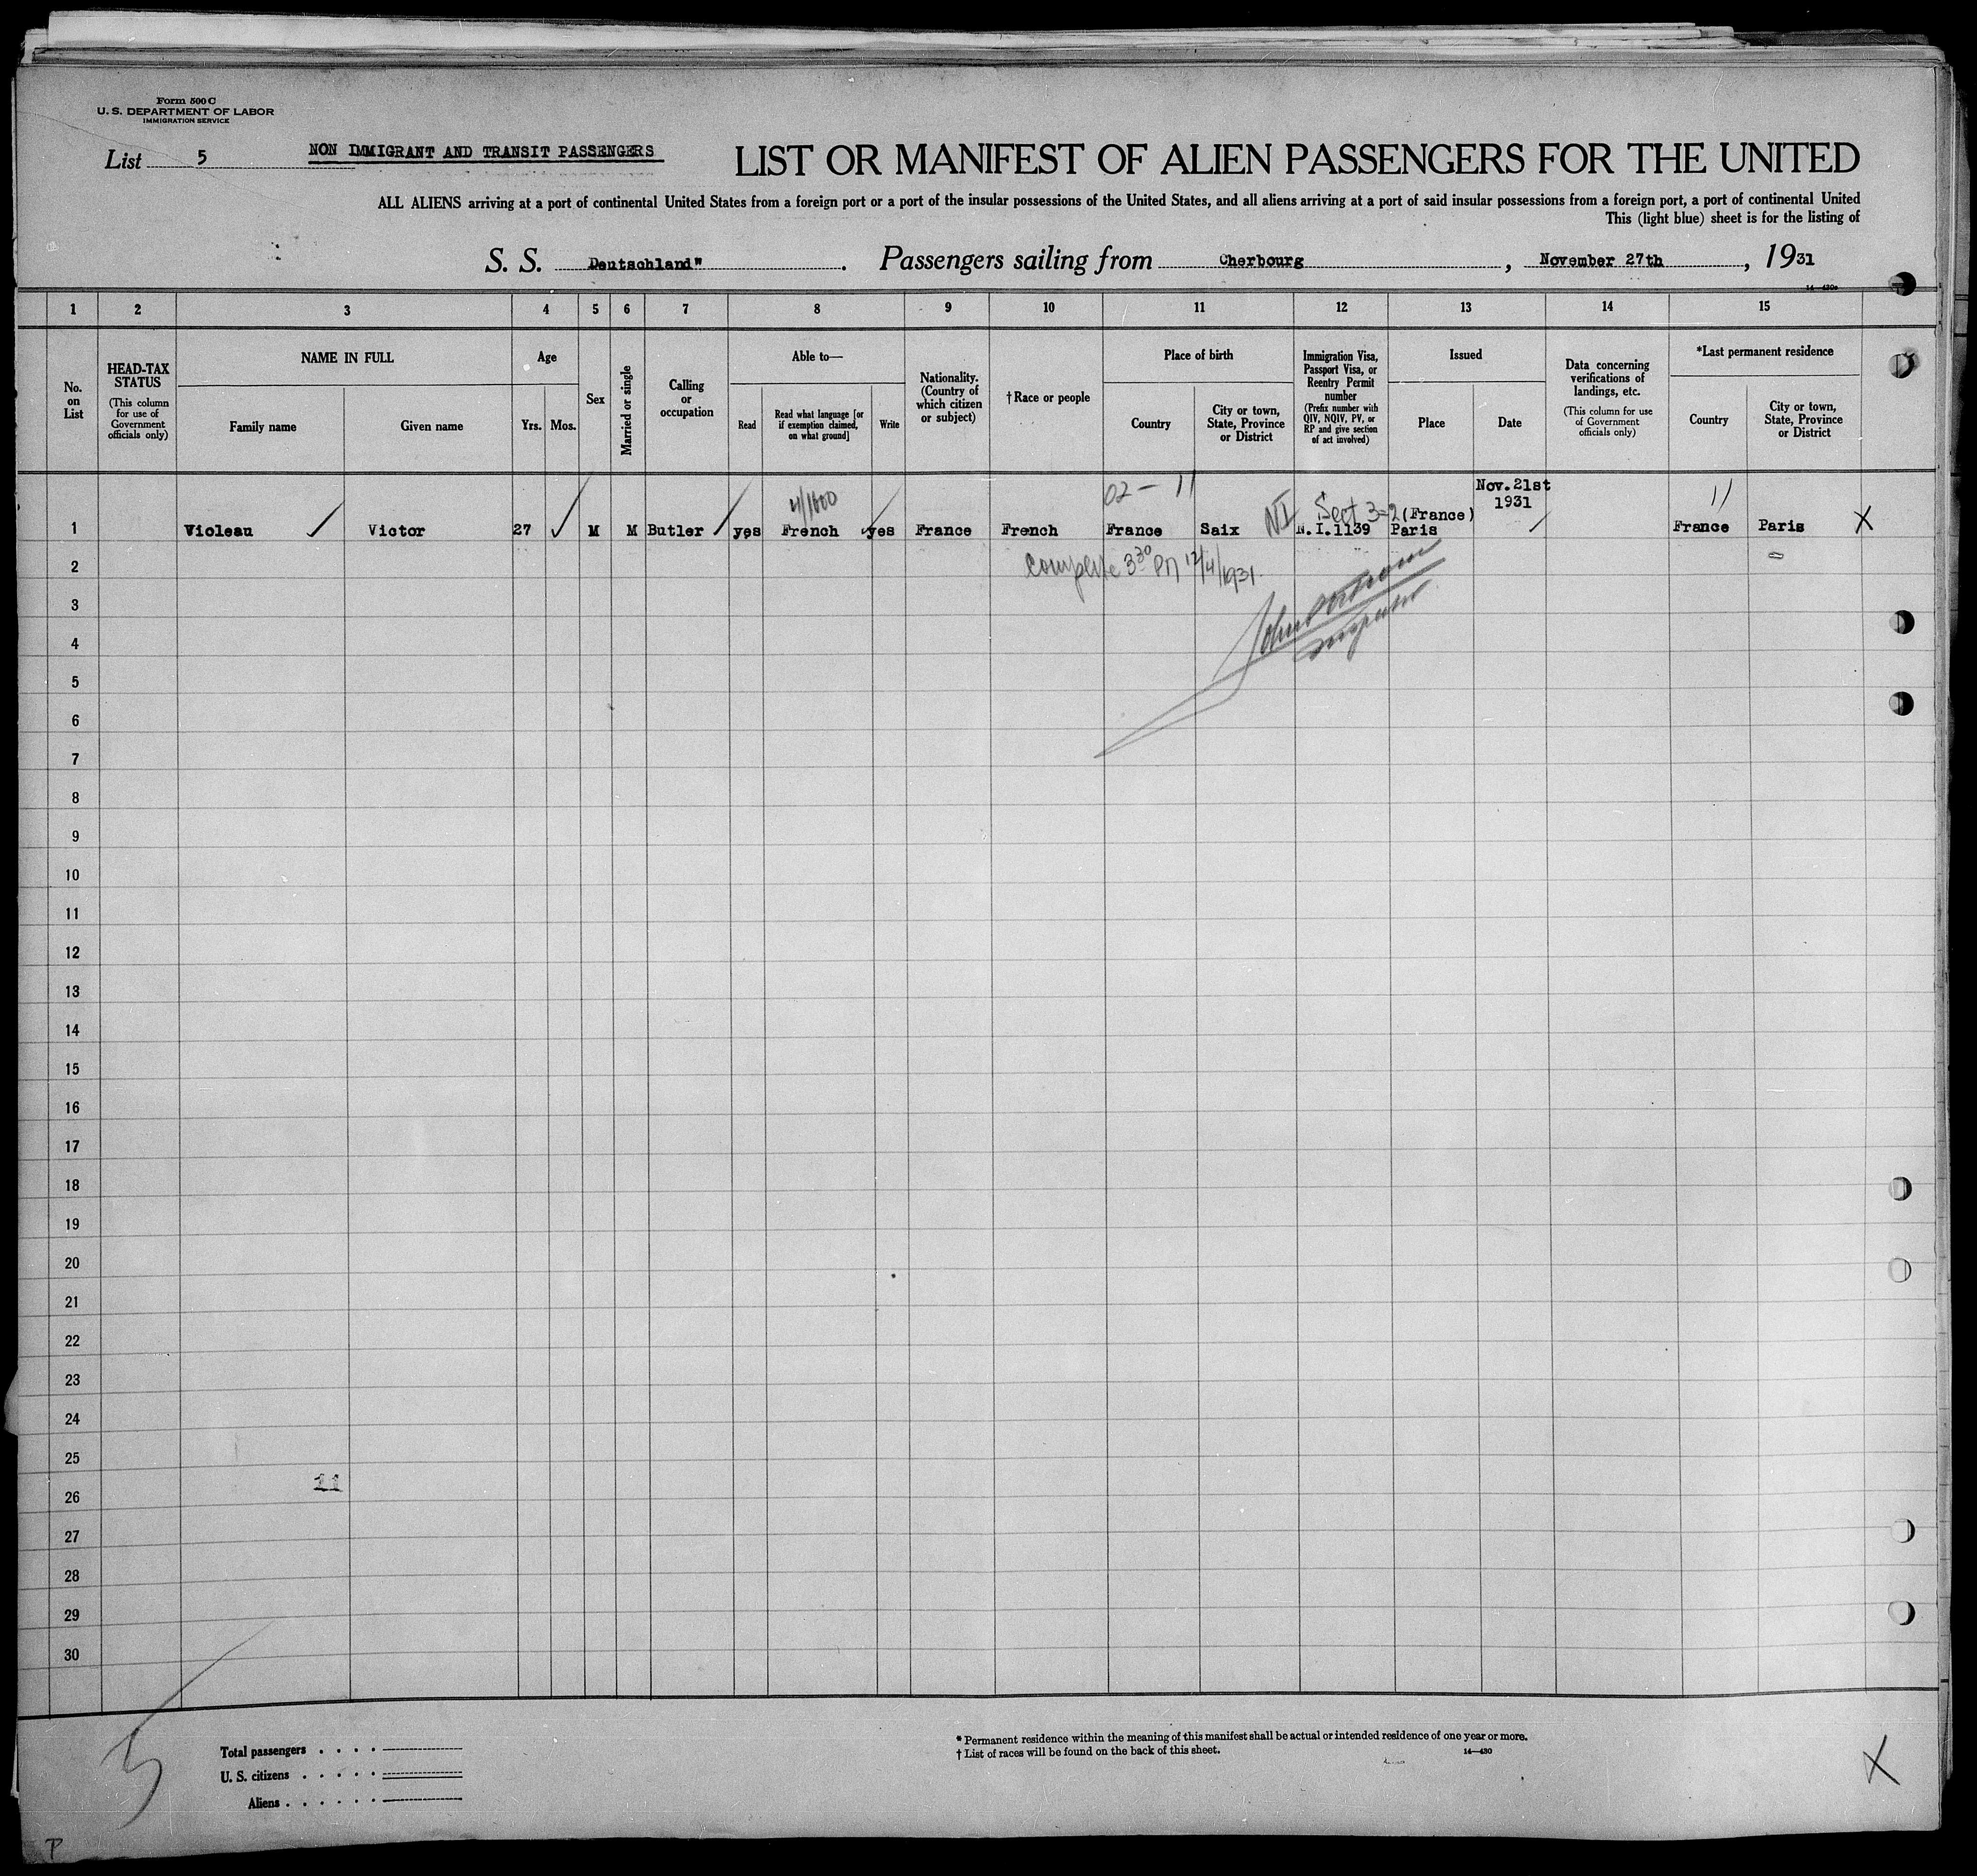 Form 500 C
U. S. DEPARTMENT OF LABOR
IMMIGRATION SERVICE
List 5
NON IMMIGRANT AND TRANSIT PASSENGERS
LIST OR MANIFEST OF ALIEN PASSENGERS FOR THE UNITED
ALL ALIENS arriving at a port of continental United States from a foreign port or a port of the insular possessions of the United States, and all aliens arriving at a port of said insular possessions from a foreign port, a port of continental United
This (light blue) sheet is for the listing of
S. S. Deutschland" . Passengers sailing from Cherbourg , November 27th , 1931
1 2 3 4 5 6 7 8 9 10 11 12 13 14 15
No. on List
HEAD-TAX STATUS
(This column for use of Government officials only)
NAME IN FULL
Family name
Given name
Age
Yrs. Mos.
Sex
Married or single
Calling or occupation
Able to—
Read
Read what language [or if exemption claimed, on what ground]
Write
Nationality. (Country of which citizen or subject)
†Race or people
Place of birth
Country
City or town, State, Province or District
Immigration Visa, Passport Visa, or Reentry Permit number
(Prefix number with QIV, NQIV, PV, or RP and give section of act involved)
Issued
Place
Date
Data concerning verifications of landings, etc.
(This column for use of Government officials only)
*Last permanent residence
Country
City or town, State, Province or District
4/1600 02 — 11 NI Sect 3-2 Nov. 21st 1931 11
1 Violeau Victor 27 M M Butler yes French yes France French France Saix N.I.1139 (France) Paris France Paris X
2 Complete 3 30 PM 12/4/1931.
3
4 Inspector
5
6
7
8
9
10
11
12
13
14
15
16
17
18
19
20
21
22
23
24
25
11
26
27
28
29
30
5
Total passengers
U. S. citizens
Aliens
* Permanent residence within the meaning of this manifest shall be actual or intended residence of one year or more.
† List of races will be found on the back of this sheet.
14—430
X
P